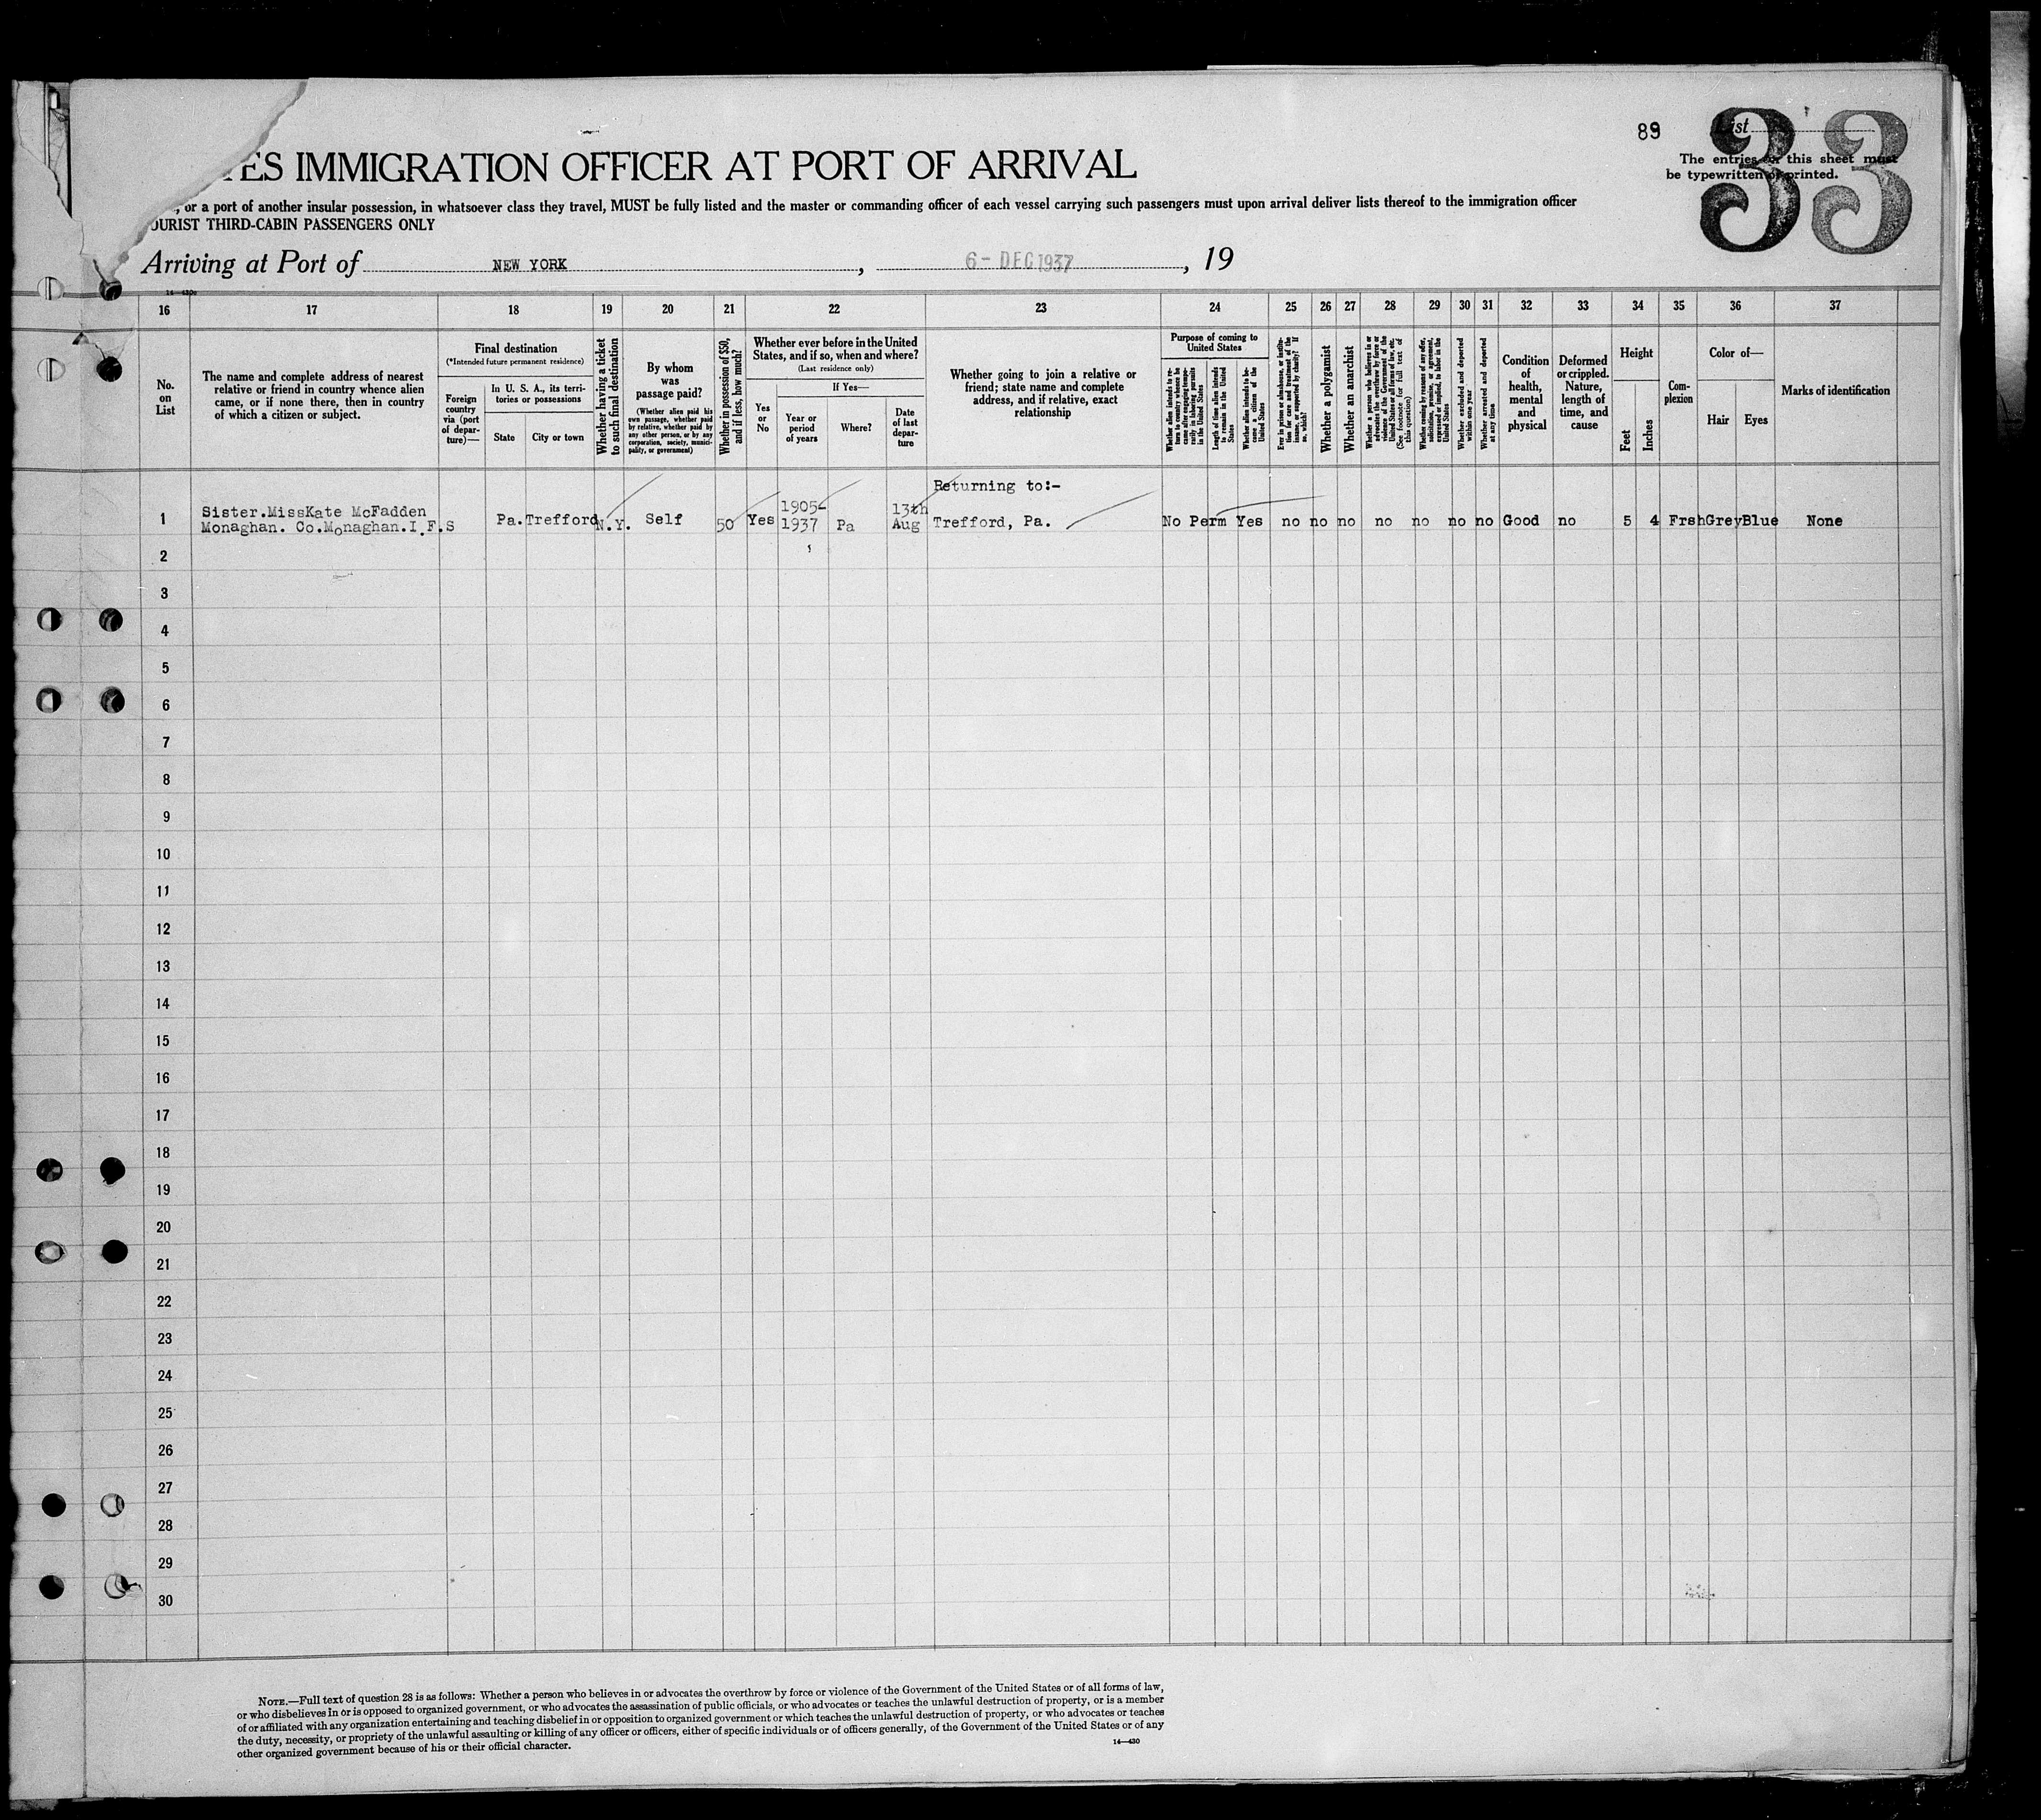 89
33
List
The entries on this sheet must
be typewritten or printed.
TES IMMIGRATION OFFICER AT PORT OF ARRIVAL
, or a port of another insular possession, in whatsoever class they travel, MUST be fully listed and the master or commanding officer of each vessel carrying such passengers must upon arrival deliver lists thereof to the immigration officer
OURIST THIRD-CABIN PASSENGERS ONLY
Arriving at Port of NEW YORK , 6- DEC 1937 , 19
16 17 18 19 20 21 22 23 24 25 26 27 28 29 30 31 32 33 34 35 36 37
No.
on
List
The name and complete address of nearest
relative or friend in country whence alien
came, or if none there, then in country
of which a citizen or subject.
Final destination
(*Intended future permanent residence)
Foreign
country
via (port
of depar-
ture)—
In U. S. A., its terri-
tories or possessions
State
City or town
Whether having a ticket
to such final destination
By whom
was
passage paid?
(Whether alien paid his
own passage, whether paid
by relative, whether paid by
any other person, or by any
corporation, society, munici-
pality, or government)
Whether in possession of $50,
and if less, how much?
Whether ever before in the United
States, and if so, when and where?
(Last residence only)
Yes
or
No
If Yes—
Year or
period
of years
Where?
Date
of last
depar-
ture
Whether going to join a relative or
friend; state name and complete
address, and if relative, exact
relationship
Purpose of coming to
United States
Whether alien intends to re-
turn to country whence he
came after engaging tempo-
rarily in laboring pursuits
in the United States
Length of time alien intends
to remain in the United
States
Whether alien intends to be-
come a citizen of the
United States
Ever in prison or almshouse, or institu-
tion for care and treatment of the
insane, or supported by charity? If
so, which?
Whether a polygamist
Whether an anarchist
Whether a person who believes in or
advocates the overthrow by force or
violence of the Government of the
United States or all forms of law, etc.
(See footnote for full text of
this question)
Whether coming by reasons of any offer,
solicitation, promise, or agreement,
expressed or implied, to labor in the
United States
Whether excluded and deported
within one year
Whether arrested and deported
at any time
Condition
of
health,
mental
and
physical
Deformed
or crippled.
Nature,
length of
time, and
cause
Height
Feet
Inches
Com-
plexion
Color of—
Hair
Eyes
Marks of identification
Returning to:-
Sister.MissKate McFadden 1905- 13th
1 Monaghan. Co.Monaghan.I.F.S Pa. Trefford N.Y. Self 50 Yes 1937 Pa Aug Trefford, Pa. No Perm Yes no no no no no no no Good no 5 4 Frsh Grey Blue None
2
3
4
5
6
7
8
9
10
11
12
13
14
15
16
17
18
19
20
21
22
23
24
25
26
27
28
29
30
NOTE.—Full text of question 28 is as follows: Whether a person who believes in or advocates the overthrow by force or violence of the Government of the United States or of all forms of law,
or who disbelieves in or is opposed to organized government, or who advocates the assassination of public officials, or who advocates or teaches the unlawful destruction of property, or is a member
of or affiliated with any organization entertaining and teaching disbelief in or opposition to organized government or which teaches the unlawful destruction of property, or who advocates or teaches
the duty, necessity, or propriety of the unlawful assaulting or killing of any officer or officers, either of specific individuals or of officers generally, of the Government of the United States or of any
other organized government because of his or their official character.
14—430